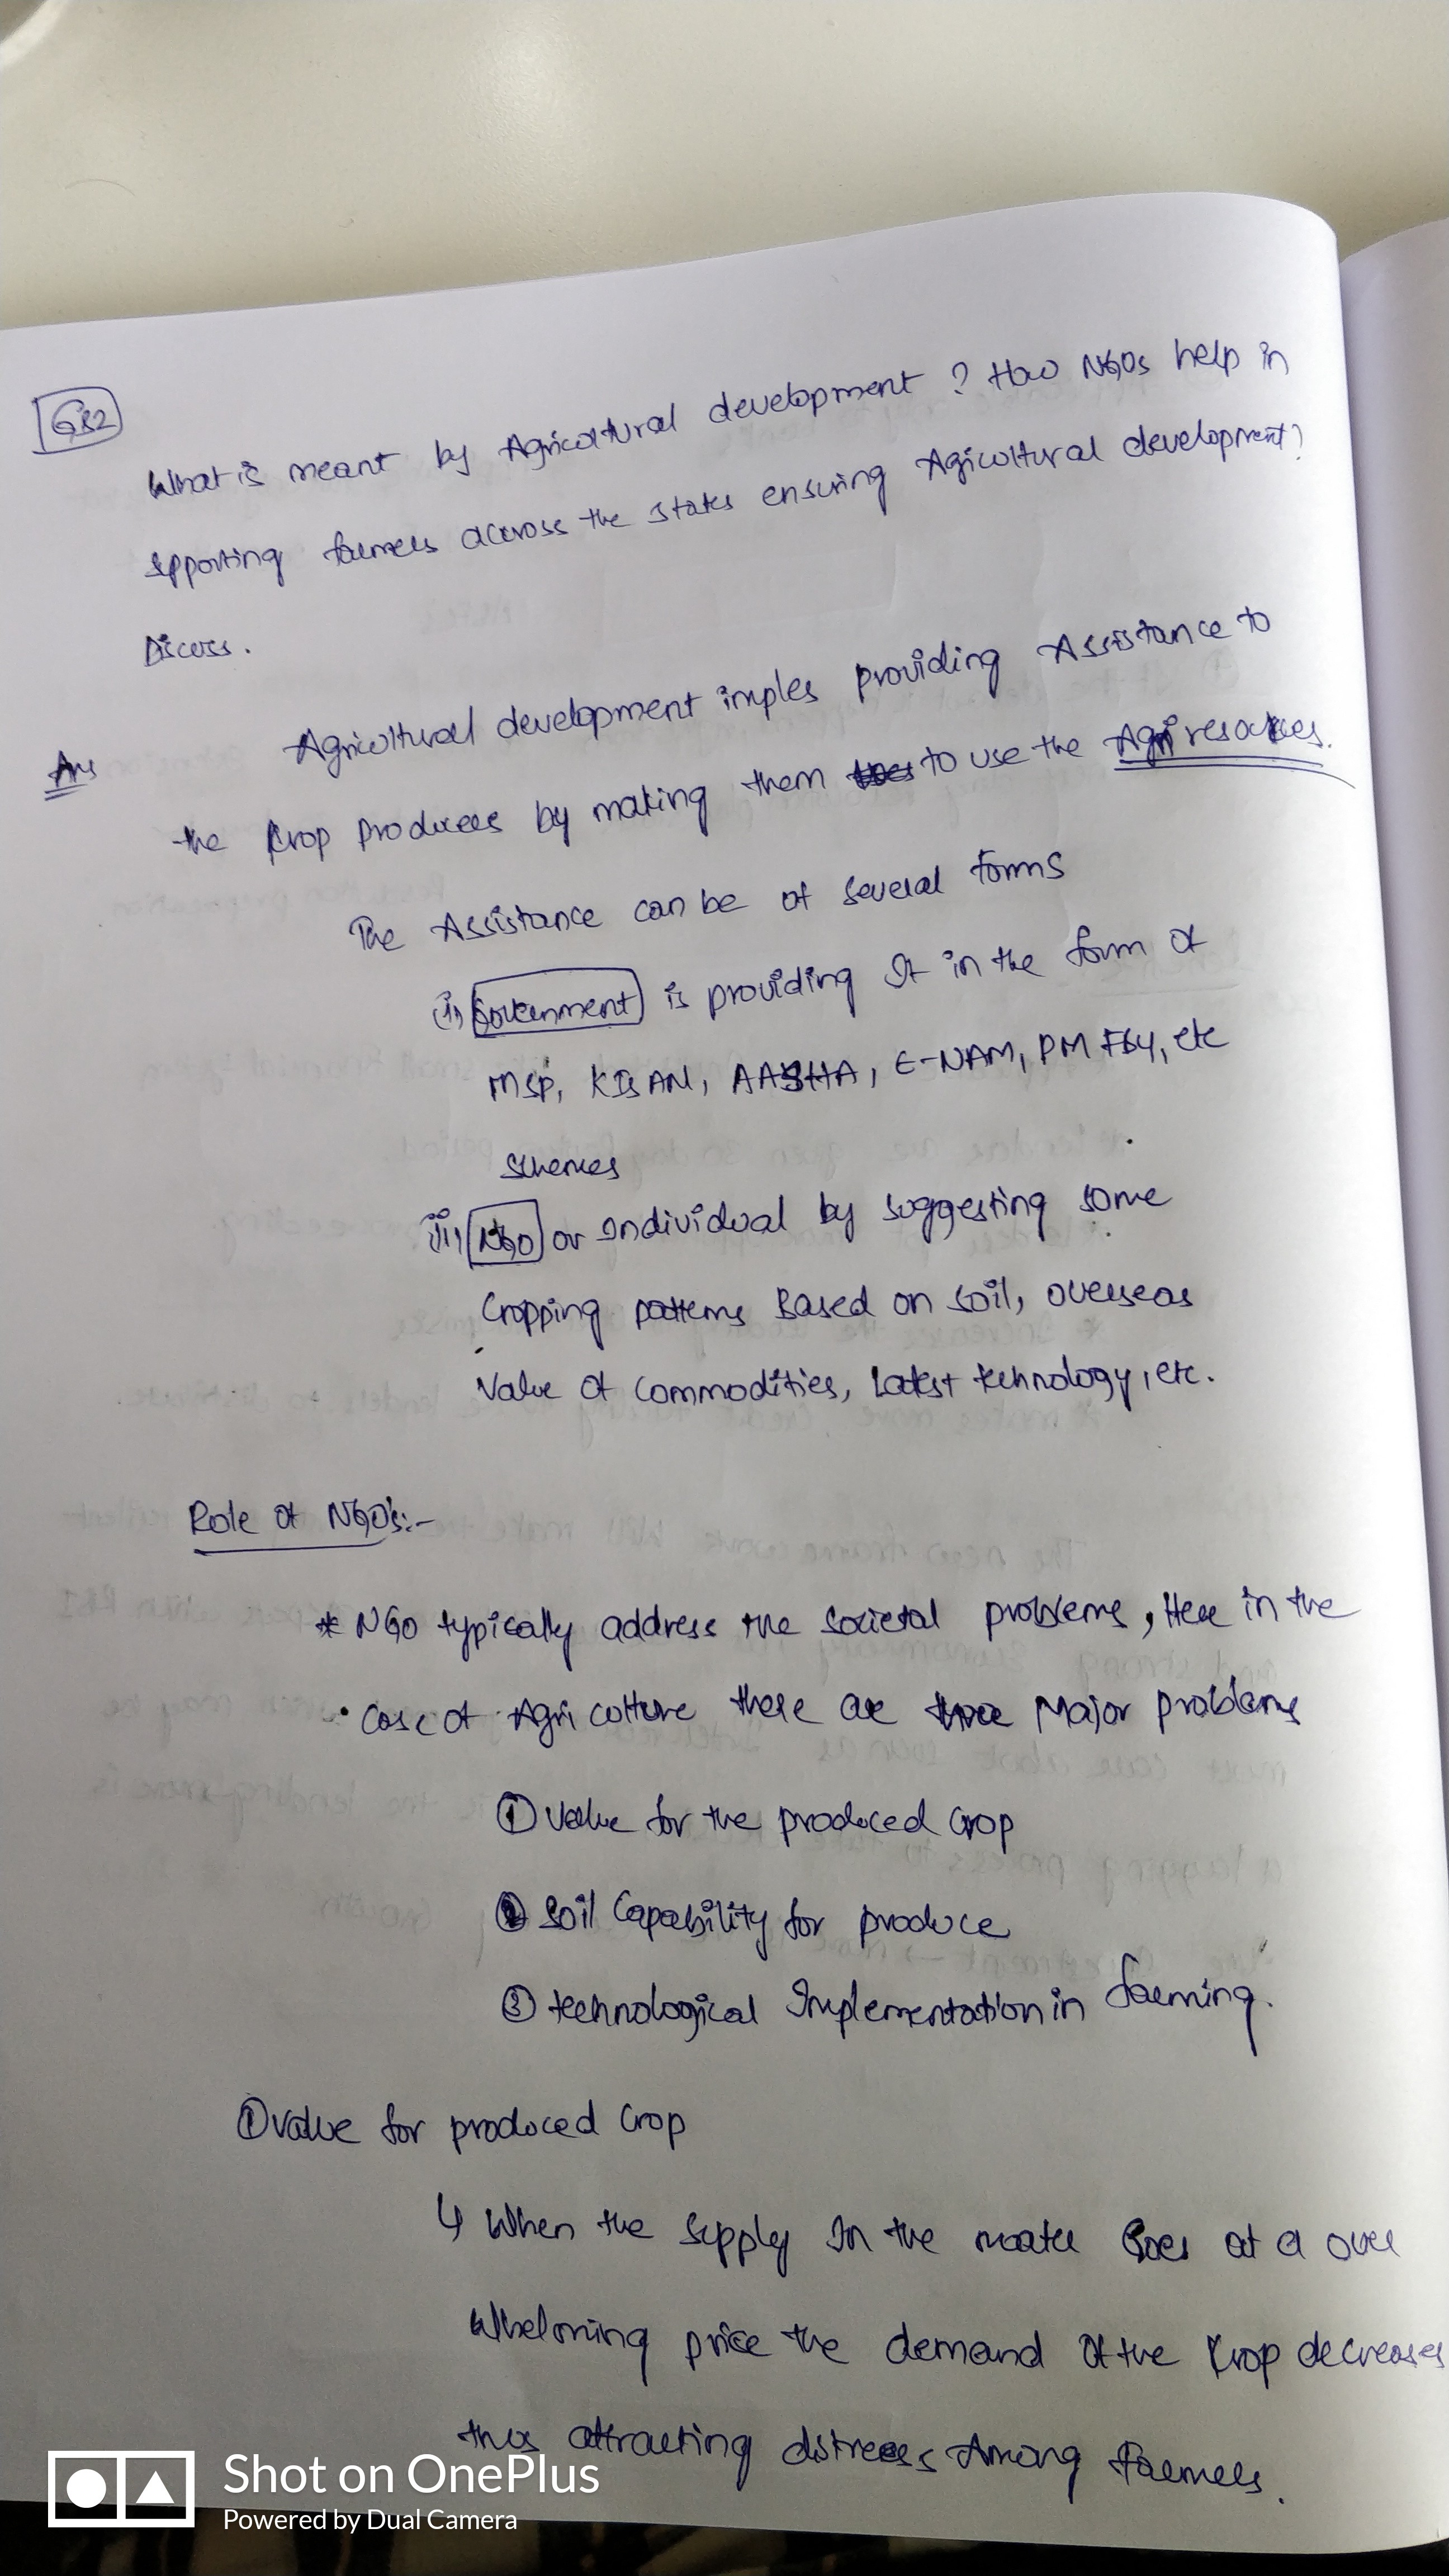 GS2
What is meant by Agricultural development? How NGOs help in
spporting farmers across the states ensuring Agricultural development?
Discuss.
Ans
Agricultural development imples providing Assistance to
the crop producers by making them to use the Agri resources.
The Assistance can be of several forms
(i) Government is providing It in the form of
MSP, KISAN, AASHA, E-NAM, PMFBY, etc
schemes
(ii) NGO or Individual by suggesting some
Cropping patterns Based on soil, overseas
Value of commodities, Latest technology, etc.
Role of NGO's:-
* NGO typically address the societal problems, Here in the
case of Agriculture there are three Major problems
① Value for the produced crop
② Soil Capability for produce
③ technological Implementation in farming.
① Value for produced crop
↳ When the supply In the Goes at a over
whelming price the demand of the crop decreases
thus attracting distress Among farmers.
Shot on OnePlus
Powered by Dual Camera